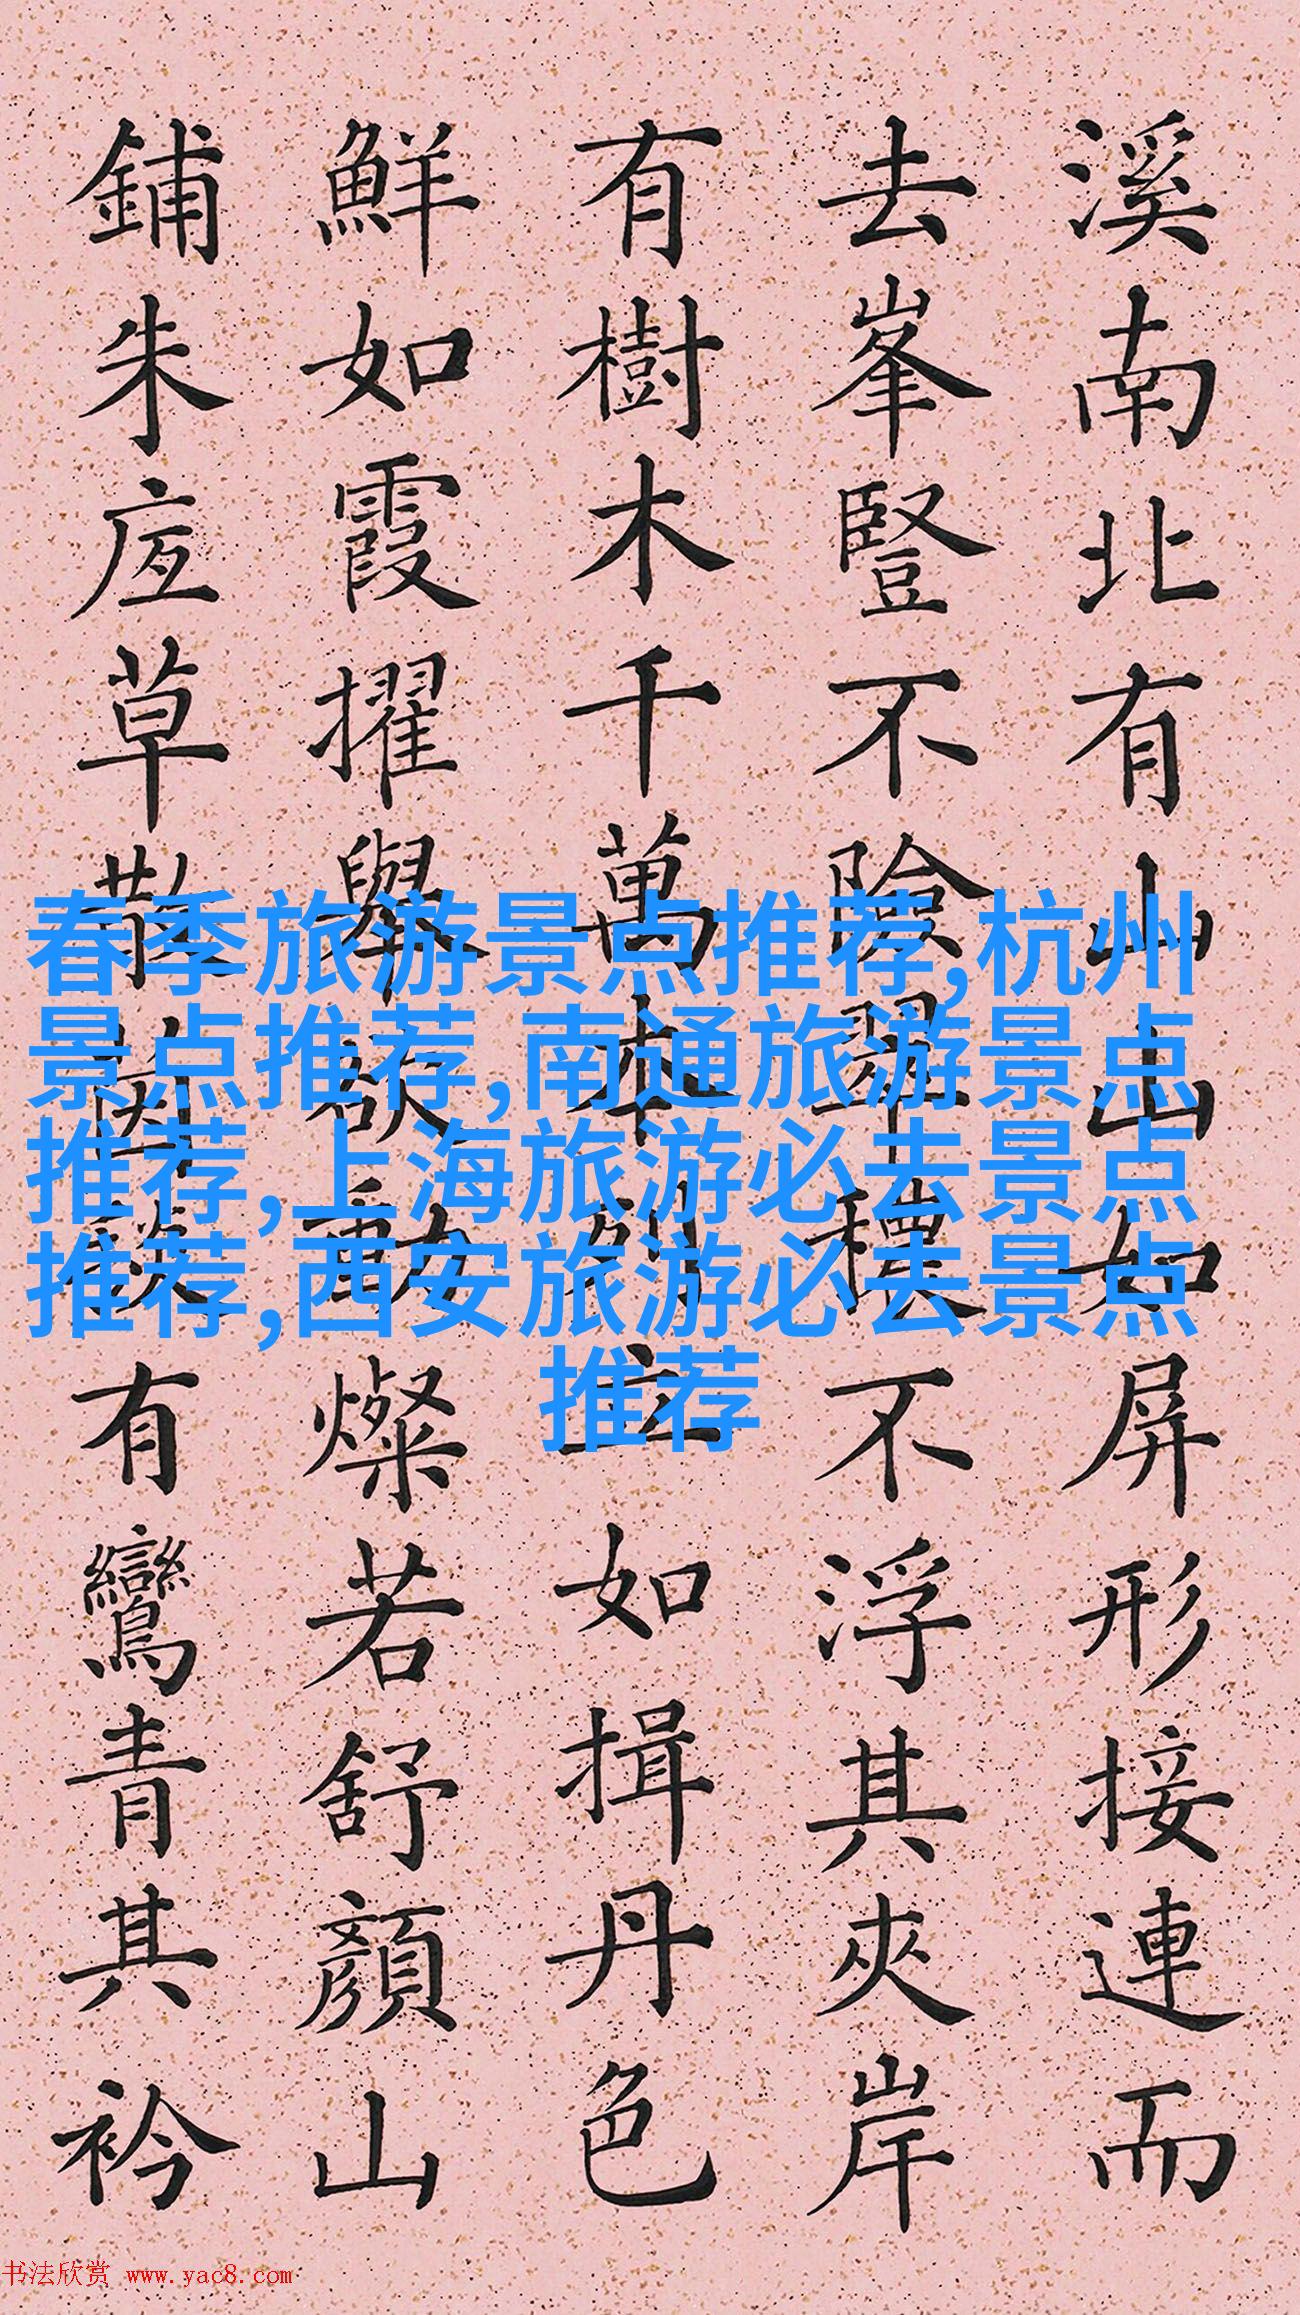 溪南北有山山如屏形接連而
去峯豎不險翠穠不浮其夾岸
有樹木千萬本列立如揖丹色
鮮如霞擢舉欲動燦若舒顏山
鋪朱草散有鸞青其衿
春季旅游景点推荐,杭州
景点推荐,南通旅游景点
推荐,上海旅游必去景点
推荐,西安旅游必去景点
推荐
书法欣赏 www.yac8.com